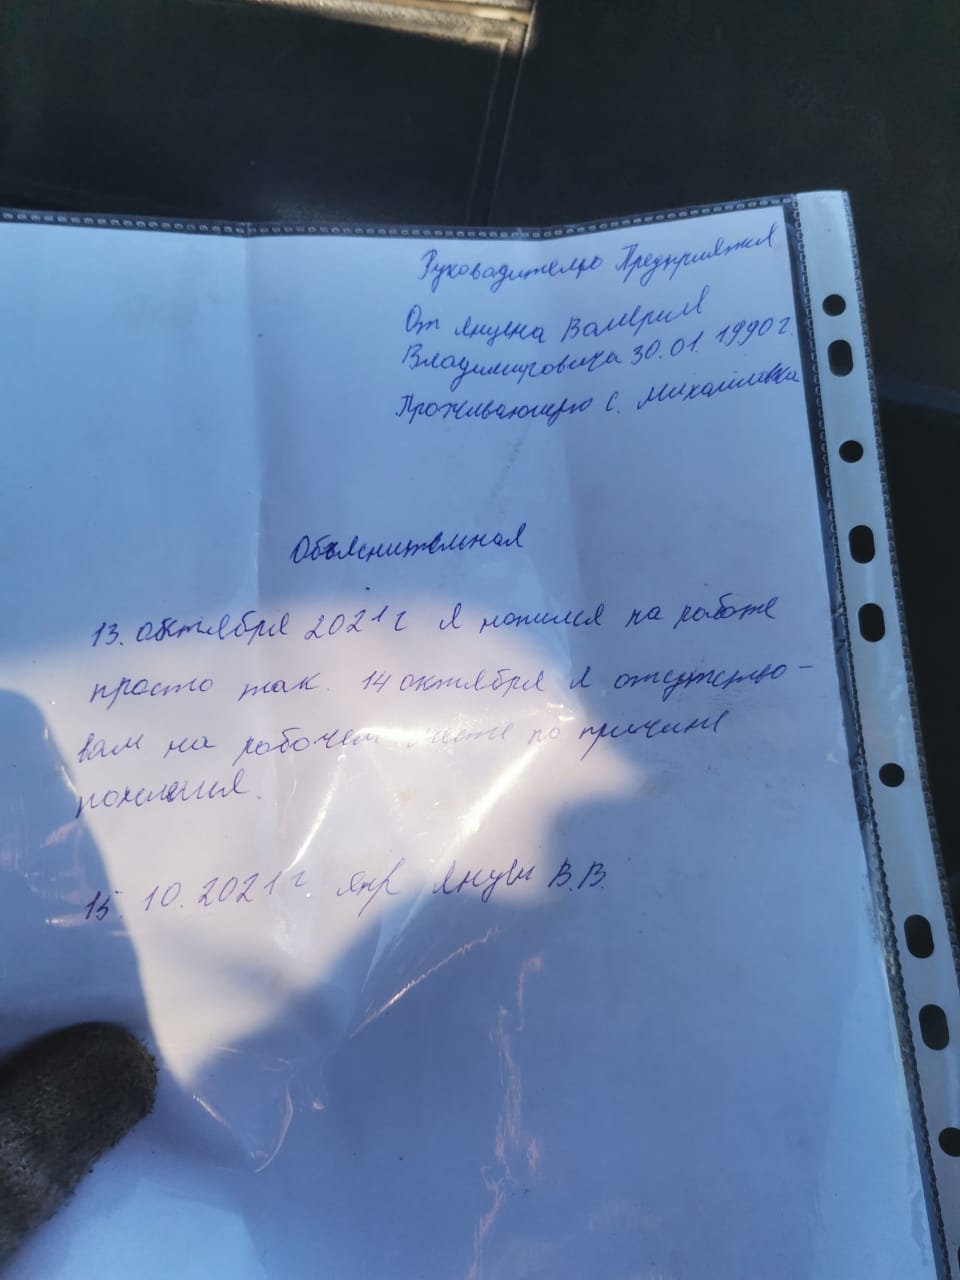 Руководителю Предприятия
От Янцена Валерия
Владимировича 30.01.1990г.
Проживающего с. Михайловка
Объяснительная
13. октября 2021г я напился на работе
просто так. 14 октября я отсутство-
вал на рабочем месте по причине
похмелия.
15.10.2021г Янцен В.В.